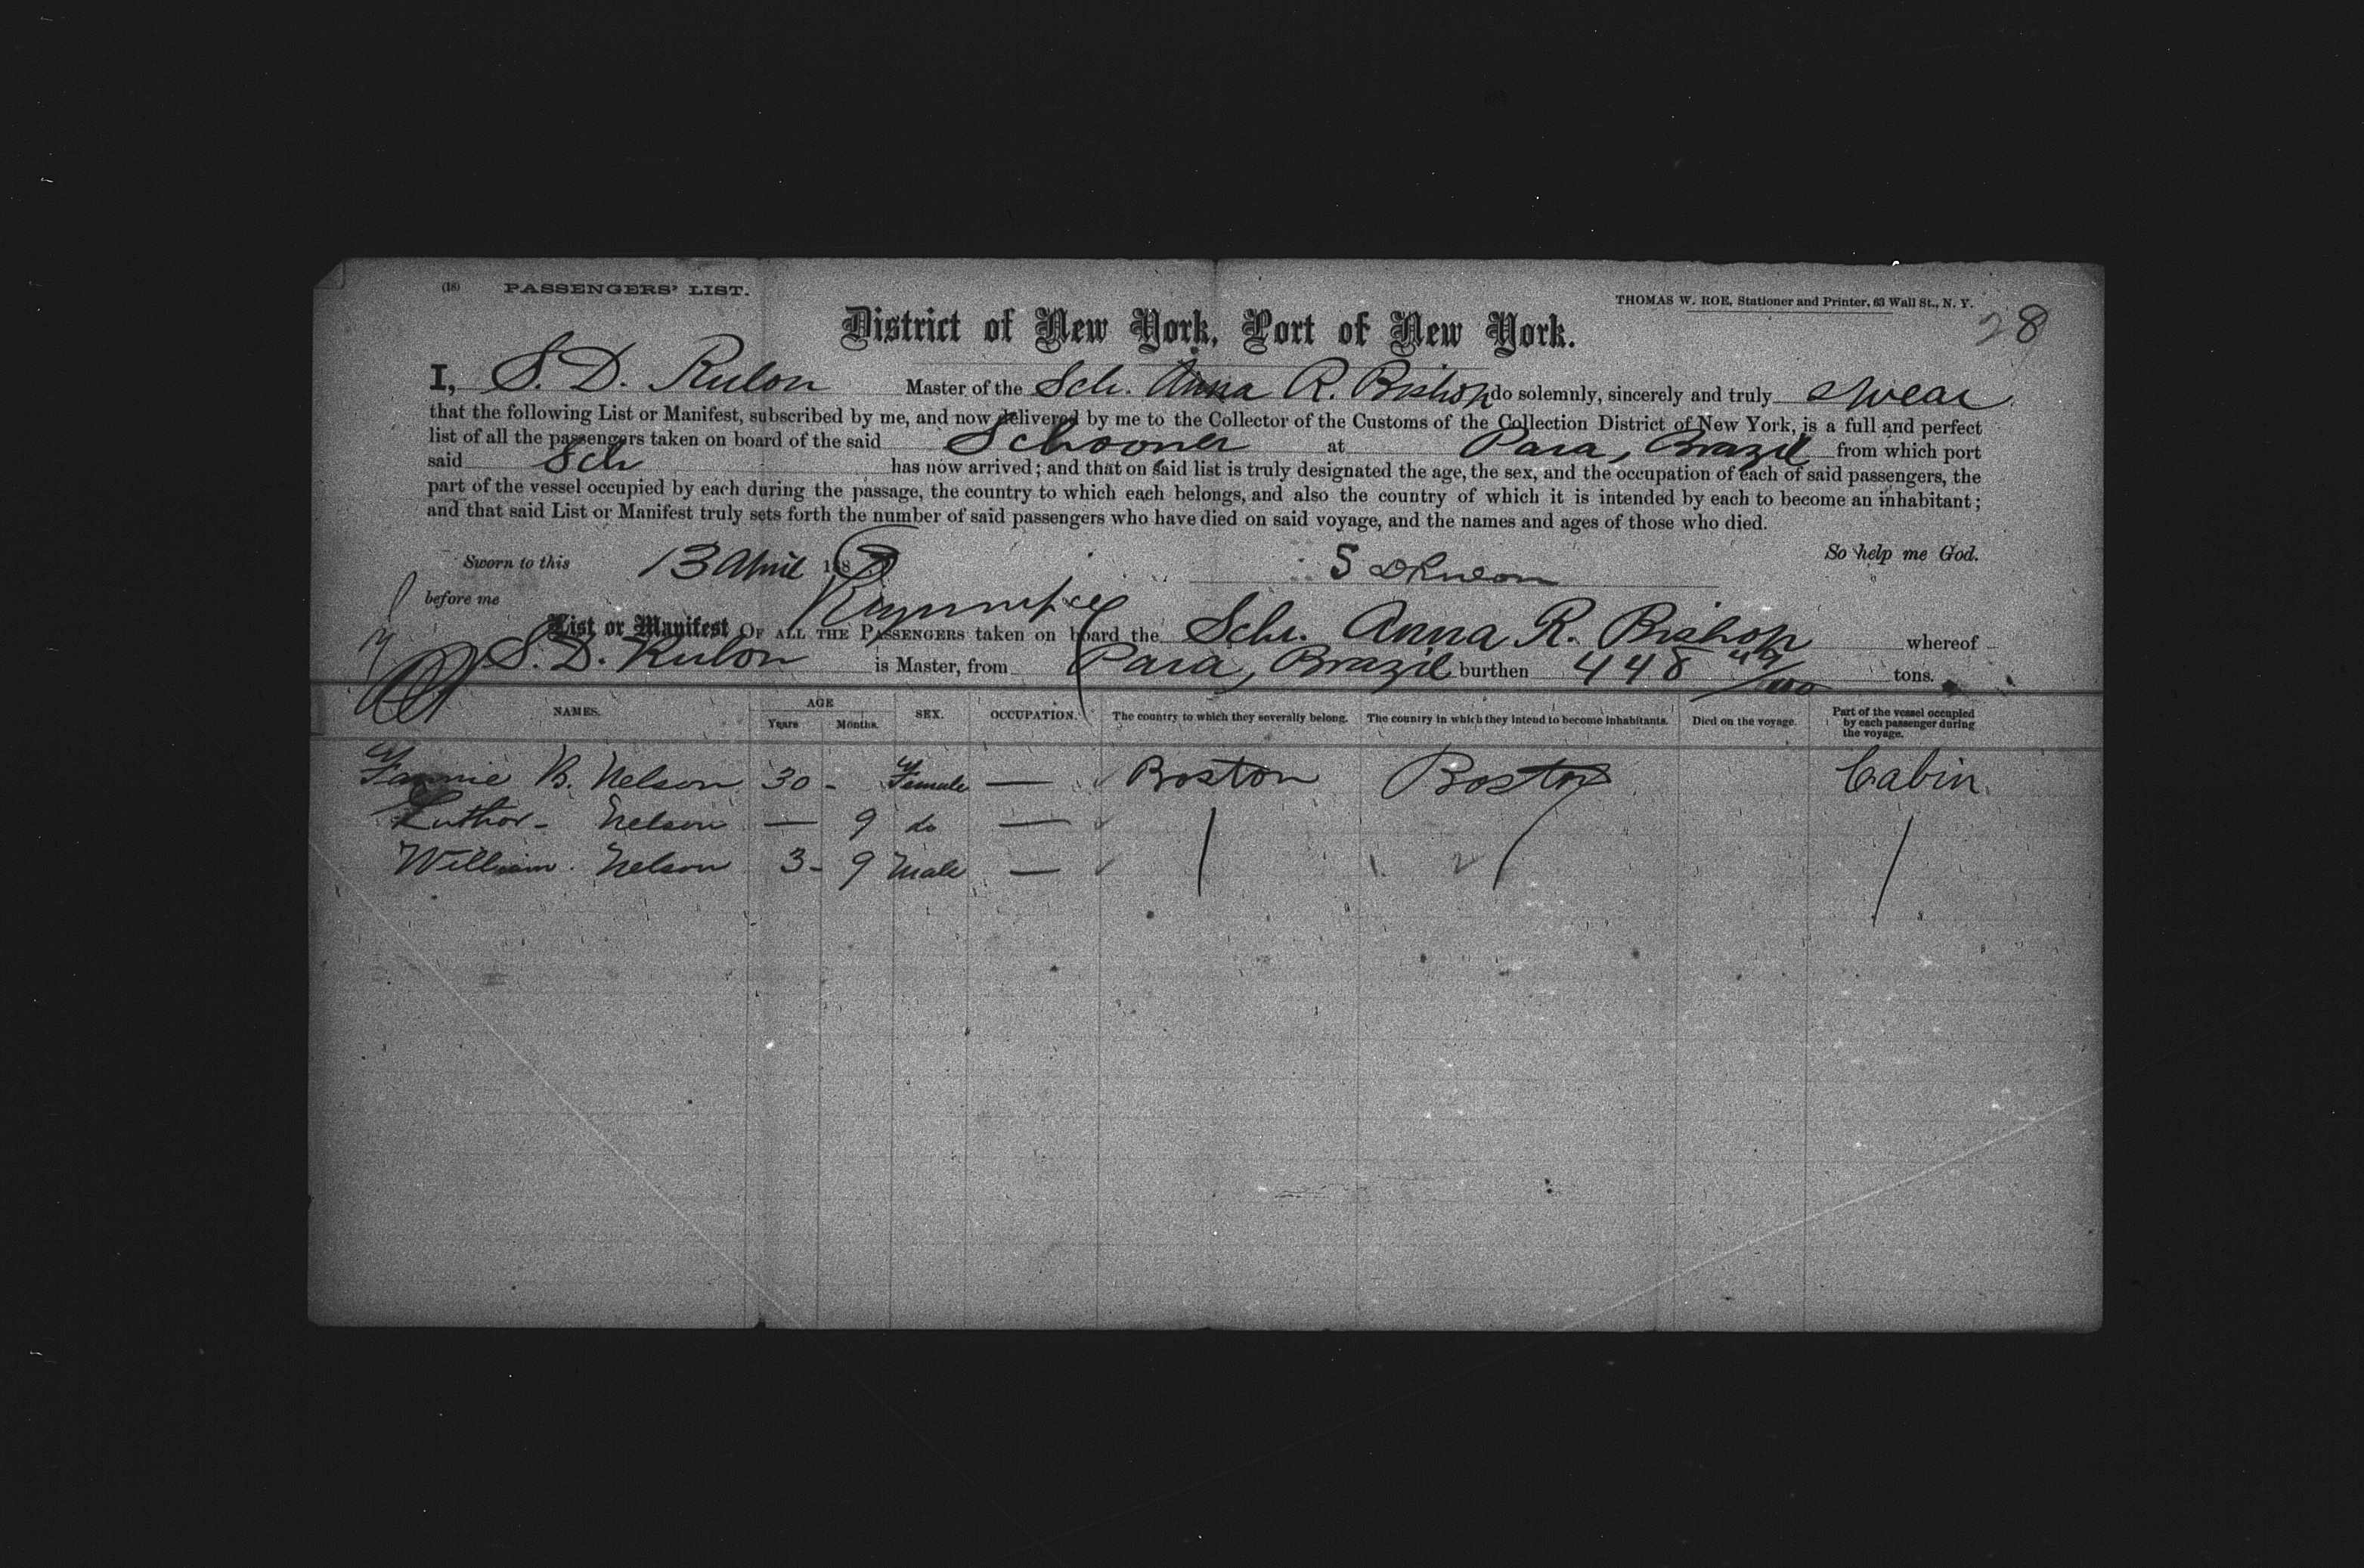 (18) PASSENGERS' LIST.
THOMAS W. ROE, Stationer and Printer, 63 Wall St., N. Y.
28
District of New York, Port of New York.
I, S. D. Rulon Master of the Sch. Anna R. Bishop do solemnly, sincerely and truly swear
that the following List or Manifest, subscribed by me, and now delivered by me to the Collector of the Customs of the Collection District of New York, is a full and perfect
list of all the passengers taken on board of the said Schooner at Para, Brazil from which port
said Sch has now arrived; and that on said list is truly designated the age, the sex, and the occupation of each of said passengers, the
part of the vessel occupied by each during the passage, the country to which each belongs, and also the country of which it is intended by each to become an inhabitant;
and that said List or Manifest truly sets forth the number of said passengers who have died on said voyage, and the names and ages of those who died.
So help me God.
Sworn to this 13 April 188 S D Rulon
before me
List or Manifest OF ALL THE PASSENGERS taken on board the Schr. Anna R. Bishop whereof
S. D. Rulon is Master, from Para, Brazil burthen 448 49/100 tons.
NAMES. AGE Years Months. SEX. OCCUPATION. The country to which they severally belong. The country in which they intend to become inhabitants. Died on the voyage. Part of the vessel occupied by each passenger during the voyage.
Fannie B. Nelson 30 - Female — Boston Boston Cabin
Luthor - Nelson — 9 do —
William. Nelson 3 - 9 Male —